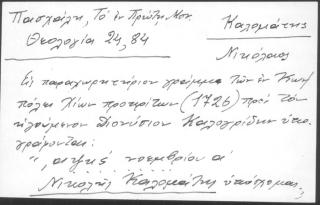 Πασχάλη, Τὸ ἐν Πρώτῃ Μον.
Θεολογία 24, 84
Καλομάτης
Νικόλαος
Εἰς παραχωρητήριον γράμμα τῶν ἐν Κων/
πόλει Χίων προκρίτων (1726) πρὸς τὸν
ἡγούμενον Διονύσιον Καλογρίδην ὑπο-
γράφονται:
", αψκς νοεμβρίου α
Νικολῆς Καλομάτης ὑπόσχομαι,